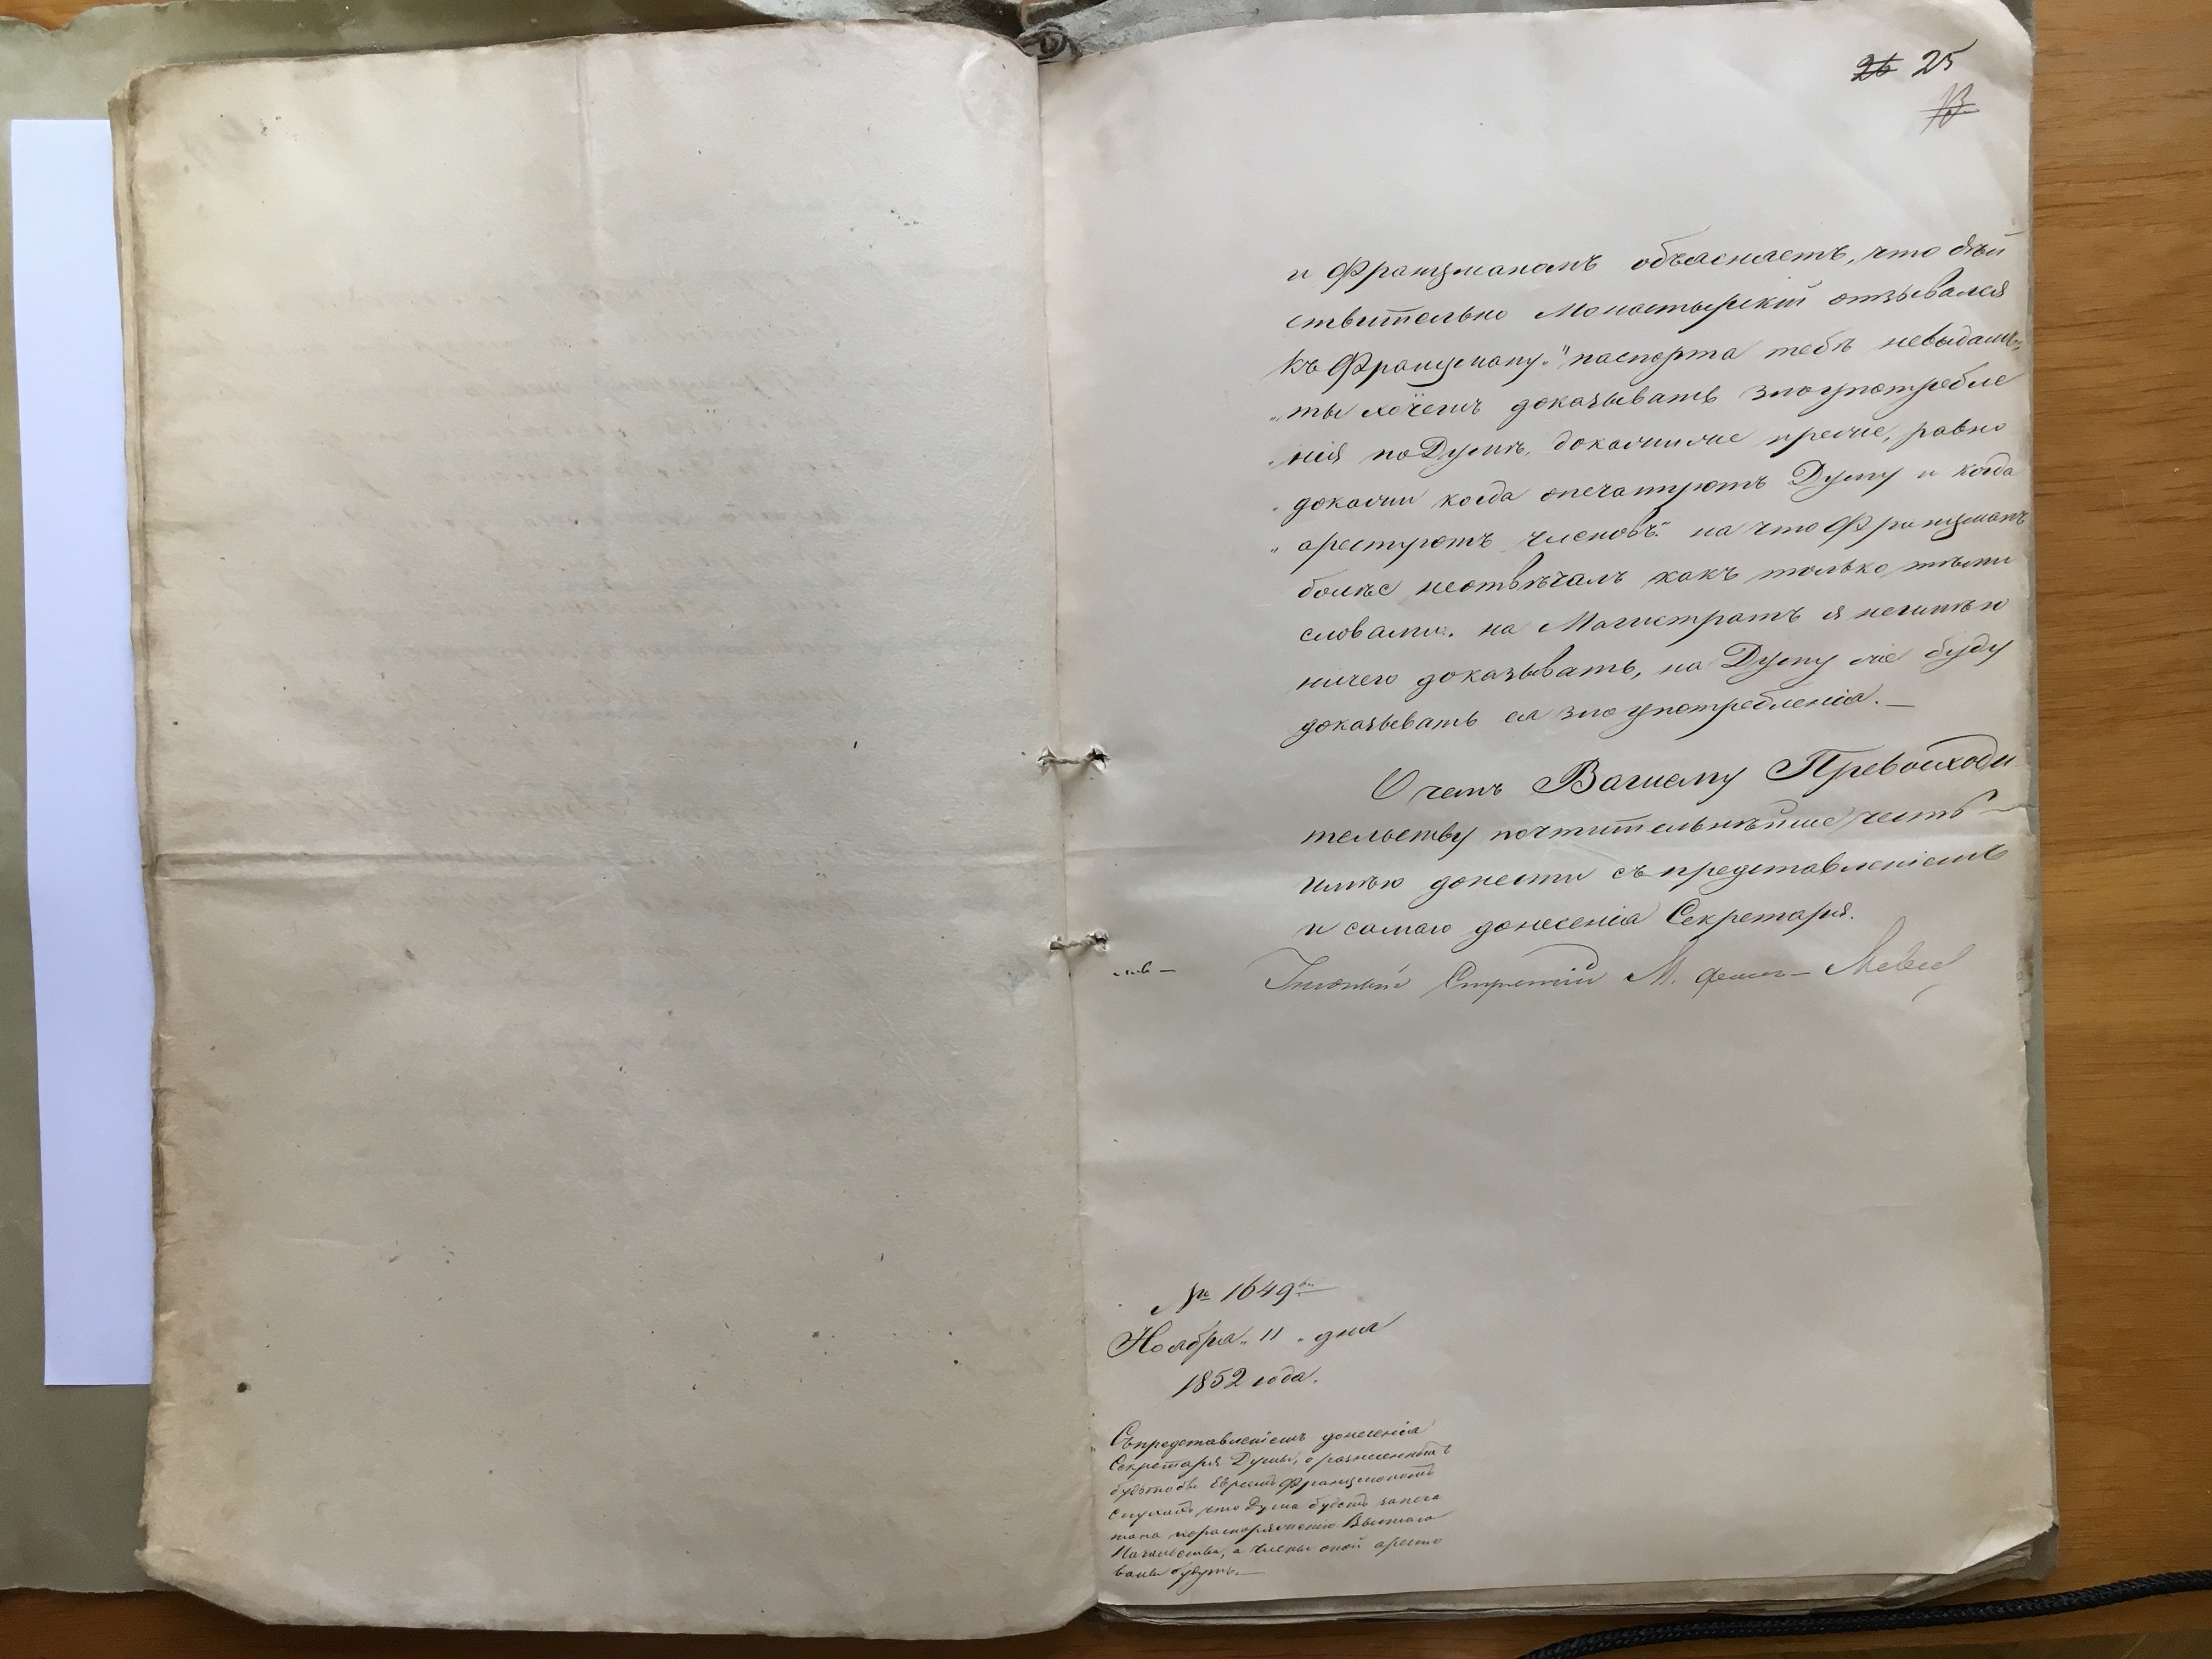 26 25
13.
и Францманомъ объясняетъ, что дѣй
ствительно Монастырскій отзывался
къ Францману: "паспорта тебѣ невыдали,
„ты хочешь доказывать злоупотребле
„нія по Думѣ, докажи же прежде, равно
„докажи когда опечатуютъ Думу и когда
„арестуютъ членовъ" на что Францманъ
болѣе неотвѣчалъ какъ только тѣми
словами: на Магистратъ я неимѣю
ничего доказывать, на Думу же буду
доказывать ея злоупотребленія. —
О чемъ Вашему Превосходи
тельству почтительнѣйше честь
имѣю донести съ представленіемъ
и самаго донесенія Секретаря.
М. фонъ-
№ 1649
Ноября „11„ дня
1852 года.
Съ представленіемъ донесенія
Секретаря Думы, о разнесенномъ
будьтобы Евреемъ Францманомъ
слухѣ, что Дума будетъ запеча
тана по распоряженію Высшаго
Начальства, а члены оной аресто
ваны будутъ. —